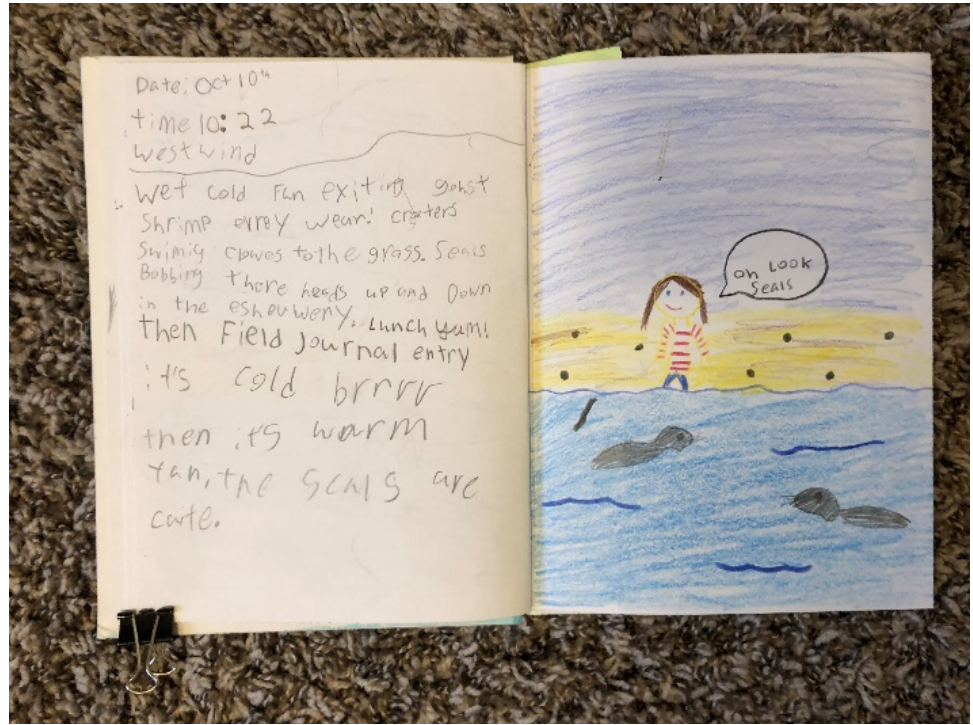 Date: Oct 10th
time 10:22
West wind
Wet cold Fun exiting gohst
Shrimp evrey wear! craters
Swimig clowes to the grass. Seals
Bobbing there heads up and Down
in the eshouwery. Lunch yum!
then Field Journal entry
it's cold brrrr
then it's warm
Yan, the seals are
cute.
oh Look
Seals